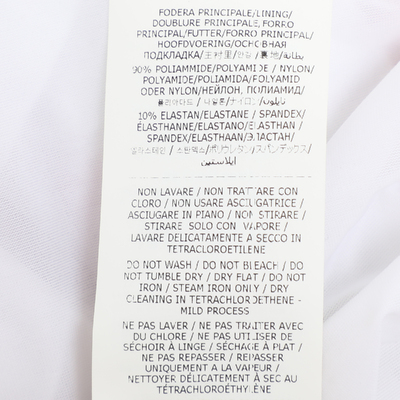 FODERA PRINCIPALE/LINING/
DOUBLURE PRINCIPALE/FORRO
PRINCIPAL/FUTTER/FORRO PRINCIPAL/
HOOFDVOERING/ОСНОВНАЯ
ПОДКЛАДКА/主衬里/안감/裏地/بطانة
90% POLIAMMIDE/POLYAMIDE / NYLON/
POLYAMIDE/POLIAMIDA/POLYAMID
ODER NYLON/НЕЙЛОН, ПОЛИАМИД/
폴리아미드 / 나일론/ナイロン/نايلون
10% ELASTAN/ELASTANE / SPANDEX/
ÉLASTHANNE/ELASTANO/ELASTHAN /
SPANDEX/ELASTHAAN/ЭЛАСТАН/
엘라스테인 / 스판덱스/ポリウレタン/スパンデックス/
إيلاستين
NON LAVARE / NON TRATTARE CON
CLORO / NON USARE ASCIUGATRICE /
ASCIUGARE IN PIANO / NON STIRARE /
STIRARE SOLO CON VAPORE /
LAVARE DELICATAMENTE A SECCO IN
TETRACLOROETILENE
DO NOT WASH / DO NOT BLEACH / DO
NOT TUMBLE DRY / DRY FLAT / DO NOT
IRON / STEAM IRON ONLY / DRY
CLEANING IN TETRACHLOROETHENE -
MILD PROCESS
NE PAS LAVER / NE PAS TRAITER AVEC
DU CHLORE / NE PAS UTILISER DE
SÉCHOIR À LINGE / SÉCHAGE À PLAT /
NE PAS REPASSER / REPASSER
UNIQUEMENT A LA VAPEUR /
NETTOYER DÉLICATEMENT À SEC AU
TÉTRACHLOROÉTHYLÈNE